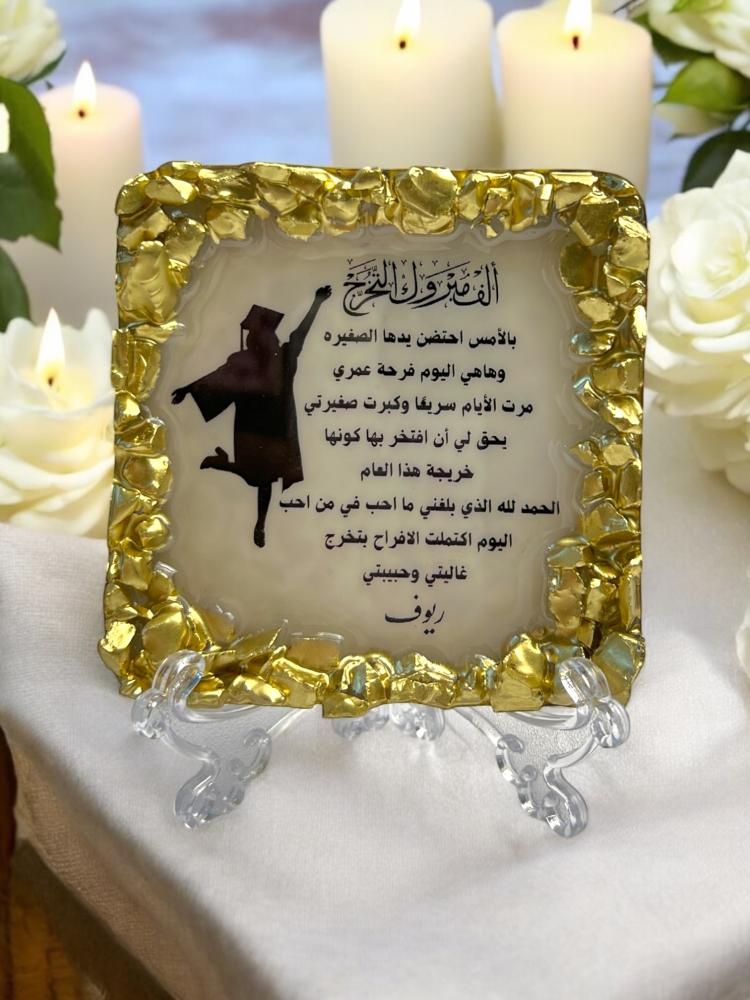 ألف مبروك التخرج
بالأمس احتضن يدها الصغيره
وهاهي اليوم فرحة عمري
مرت الأيام سريعًا وكبرت صغيرتي
يحق لي أن افتخر بها كونها
خريجة هذا العام
الحمد لله الذي بلغني ما احب في من احب
اليوم اكتملت الافراح بتخرج
غاليتي وحبيبتي
ريوف